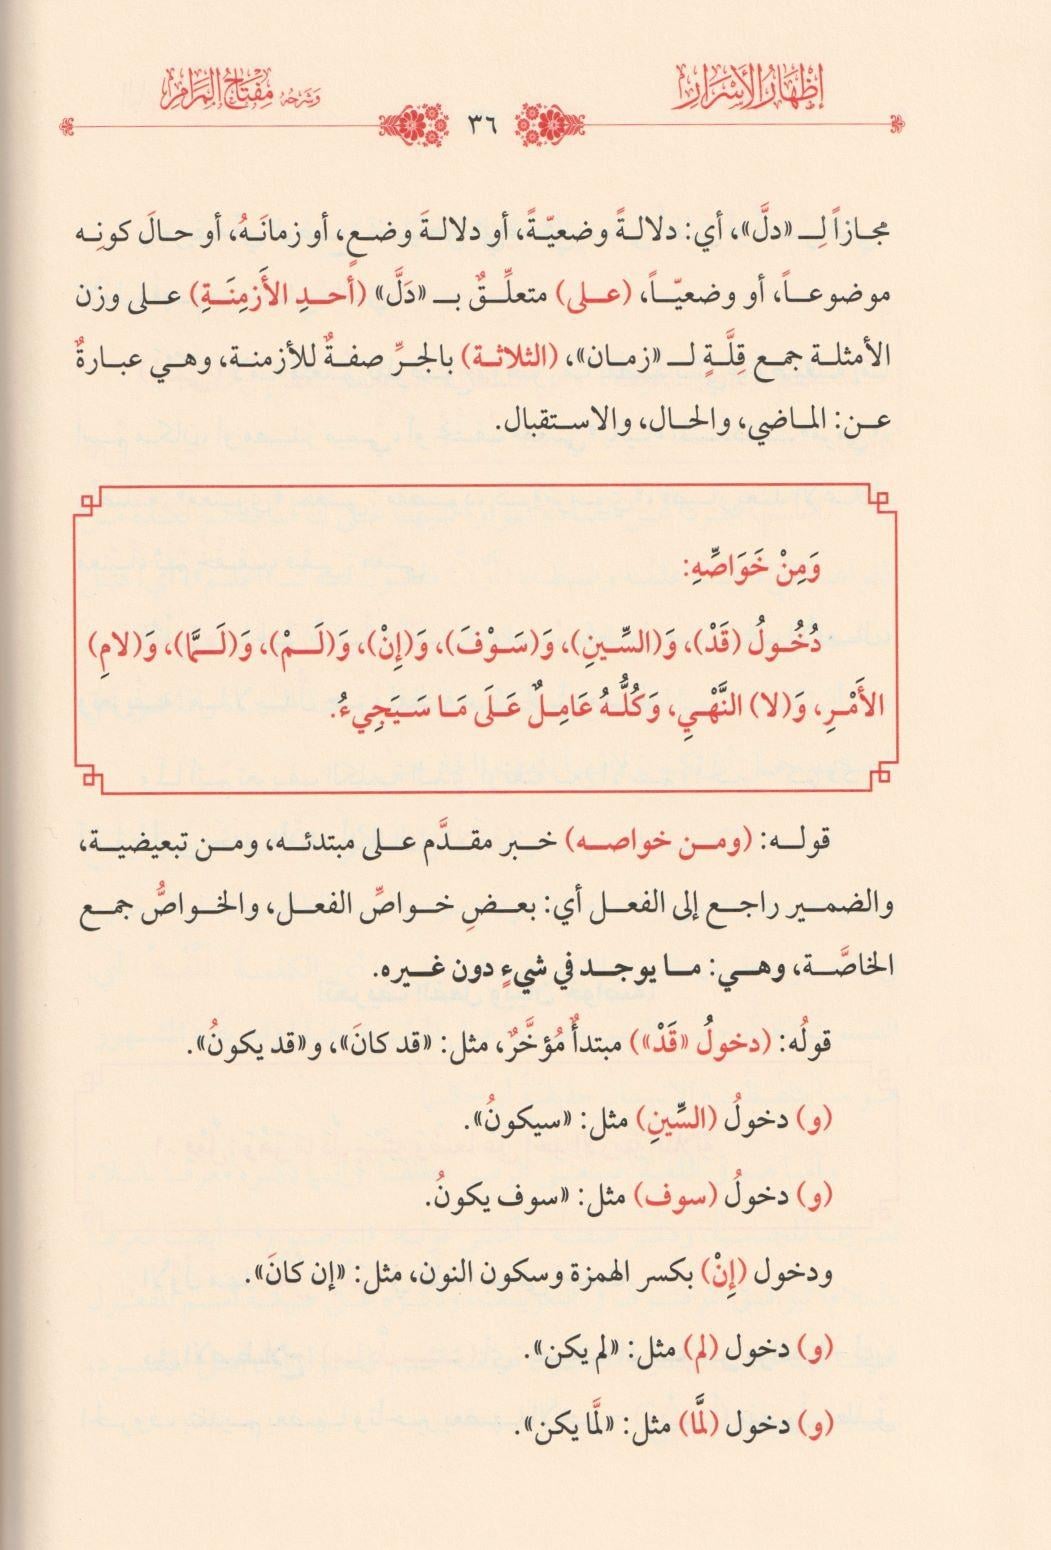 إظهار الأسرار
٣٦
وشرحه مفتاح المرام
مجازاً لِـ «دلَّ»، أي: دلالةً وضعيّةً، أو دلالةَ وضعٍ، أو زمانَهُ، أو حالَ كونِه
موضوعاً، أو وضعيّاً، (على) متعلِّقٌ بـ «دَلَّ» (أحدِ الأَزمِنَةِ) على وزن
الأمثلة جمع قِلَّةٍ لـ «زمان»، (الثلاثة) بالجرِّ صفةٌ للأزمنة، وهي عبارةٌ
عن: الماضي، والحال، والاستقبال.
وَمِنْ خَوَاصِّهِ:
دُخُولُ (قَدْ)، وَ(السِّينِ)، وَ(سَوْفَ)، وَ(إِنْ)، وَ(لَمْ)، وَ(لَمَّا)، وَ(لامِ)
الأَمْرِ، وَ(لا) النَّهْيِ، وَكُلُّهُ عَامِلٌ عَلَى مَا سَيَجِيءُ.
قوله: (ومن خواصه) خبر مقدَّم على مبتدئه، ومن تبعيضية،
والضمير راجع إلى الفعل أي: بعضِ خواصِّ الفعل، والخواصُّ جمع
الخاصَّة، وهي: ما يوجد في شيءٍ دون غيره.
قولُه: (دخولُ «قَدْ») مبتدأٌ مُؤخَّرٌ، مثل: «قد كانَ»، و«قد يكونُ».
(و) دخولُ (السِّينِ) مثل: «سيكونُ».
(و) دخولُ (سوف) مثل: «سوف يكونُ.
ودخول (إِنْ) بكسر الهمزة وسكون النون، مثل: «إن كانَ».
(و) دخول (لم) مثل: «لم يكن».
(و) دخول (لمَّا) مثل: «لمَّا يكن».